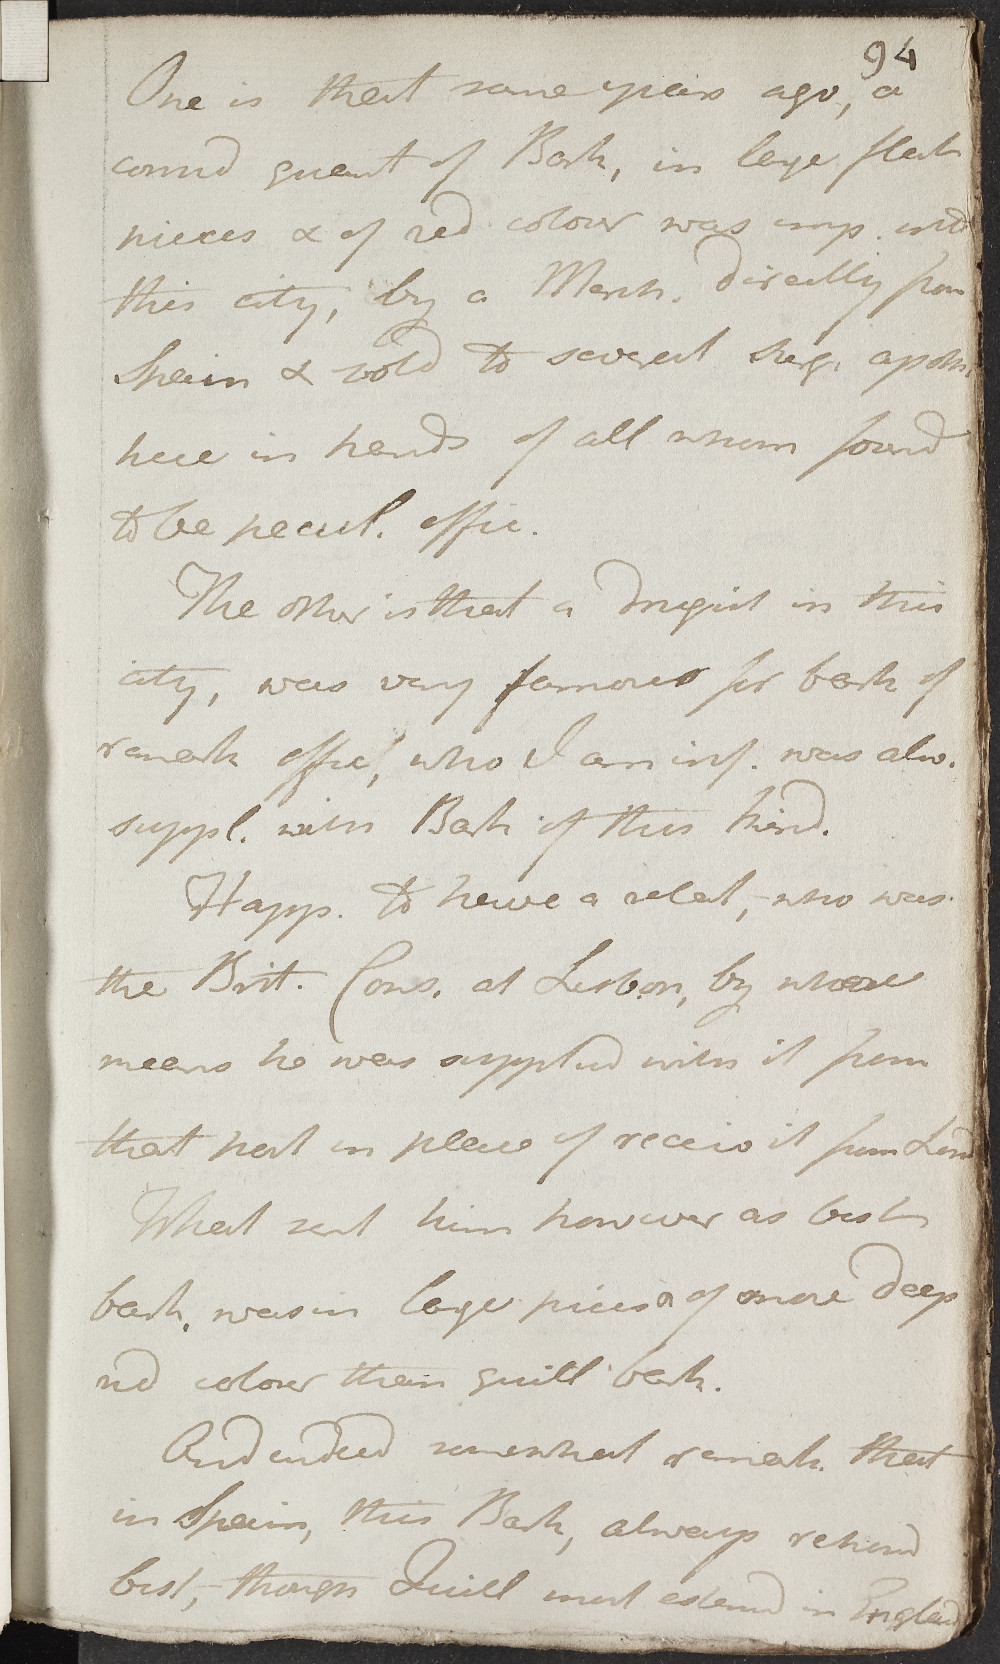 94
One is that some years ago, a
consid quant of Bark, in large flat
pieces & of red colour was imp. into
this city, by a Merch. directly from
Spain & sold to several Surg. apoth.
here in hands of all whom found
to be pecul. effic.
The other is that a Drugist in this
city, was very famous for bark of
remark effic, who I am inf. was alw.
suppl. with Bark of this kind.
Happ. to have a relat, who was
the Brit. Cons. at Lisbon, by whose
means he was supplied with it from
that port in place of receiv it from Lond
What sent him however as best
bark, was in large pieces & of more deep
red colour than quill bark.
And indeed somewhat remark. that
in Spain, this Bark, always rekond
best, though Quill most esteemd in England